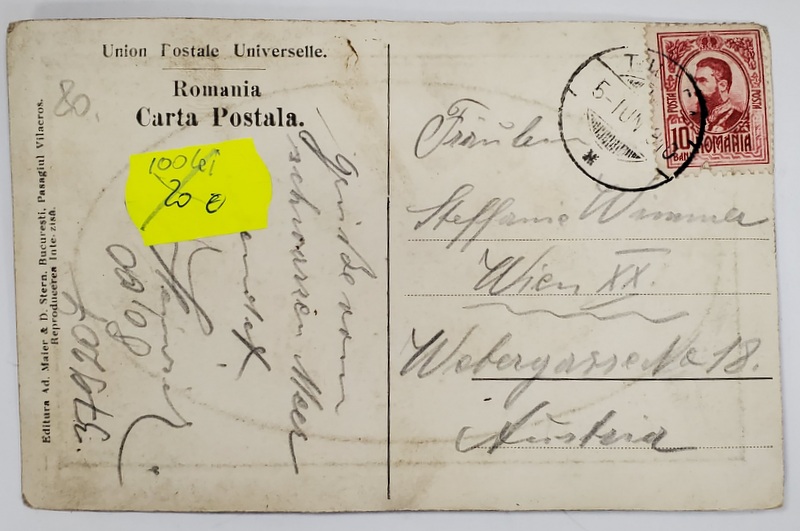 Union Postale Universelle.
Romania
Carta Postala.
Editura Ad. Maier & D. Stern, București, Pasagiul Vilacros.
Reproducerea Interzisă.
80.
100 lei
20 €
Grüsse vom
schwarzen Meer
sendet
Heinrich
POSTA
10
BANI
ROMANIA
5-IUN
Fräulein
Steffanie Wimmer
Wien XX.
Webergasse No 18.
Austria